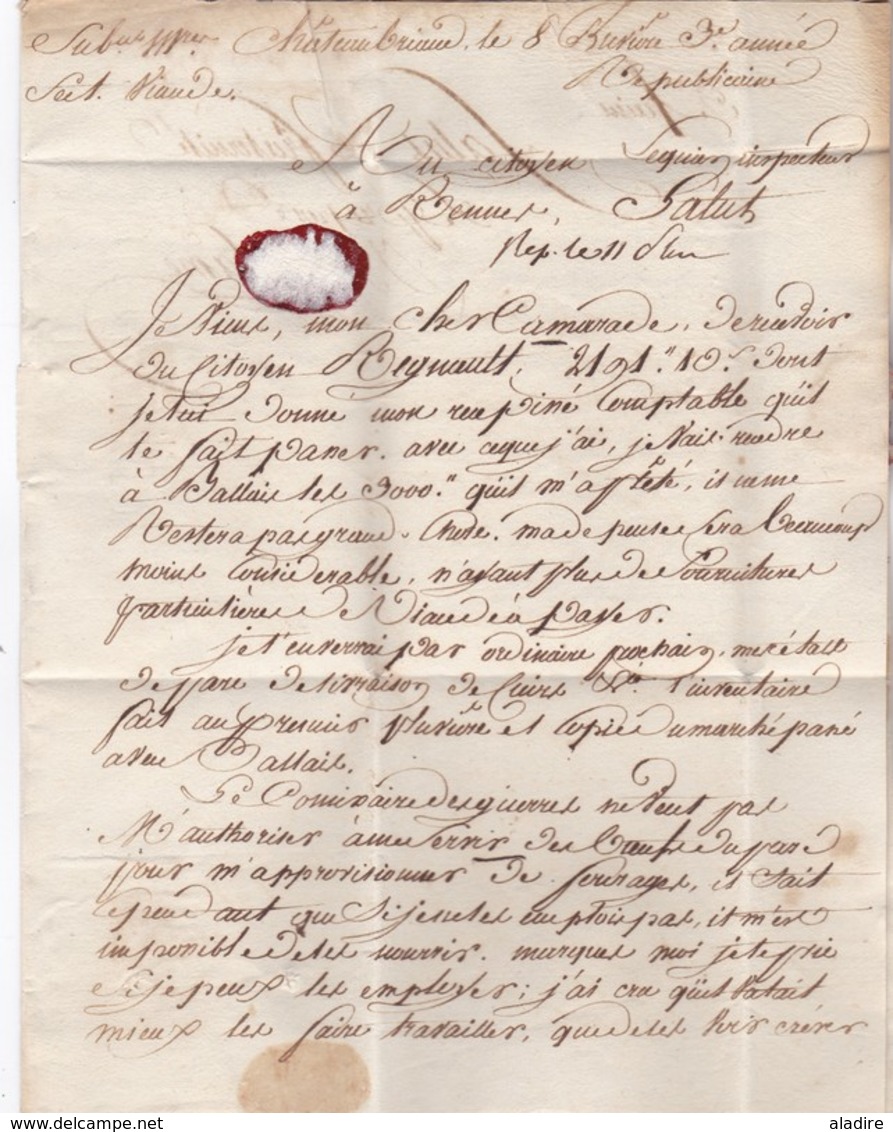 Subces milres Chateaubriand, le 8 Pluviôse 3e. année
Sect. Viande. Republicaine
Au citoyen Lequier inspecteur
à Rennes, Salut
Rep. le 11 d'un
Je Viens, mon cher Camarade, de recevoir
du Citoyen Regnault, 2191.ll 10s. dont
je lui donné mon recepissé comptable qu'il
te fait passer. avec ce que j'ai, je vais rendre
à Ballais les 3000.ll qu'il m'a prêté, il ne me
Restera pas grand-chose. ma depense sera beaucoup
moins considerable, n'ayant plus de fournitures
particulières de Viande à payer.
je t'enverrai par ordinaire prochain, mes états
de parc de livraison de Cuirs &a. l'inventaire
fait au premier pluviôse et copie du marché passé
avec Ballais.
Le Commissaire des guerres ne veut pas
M'authoriser à me servir des Bœufs du parc
pour m'approvisionner de fourages, il sait
cependant que si je ne les emplois pas, il m'est
impossible de les nourrir. marques moi je te prie
si je peux les employer; j'ai cru qu'il valait
mieux les faire travailler, que de les voir crever
aladire
delcampe.net